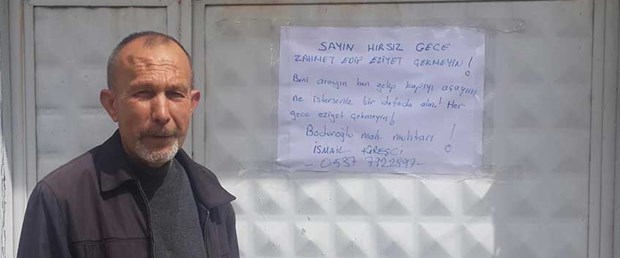 SAYIN HIRSIZ GECE
ZAHMET EDİP EZİYET ÇEKMEYİN!
Beni arayın ben gelip kapıyı açayım
ne isterseniz bir defada alın! Her
gece eziyet çekmeyin!
Boduroğlu mah muhtarı !
İSMAİL